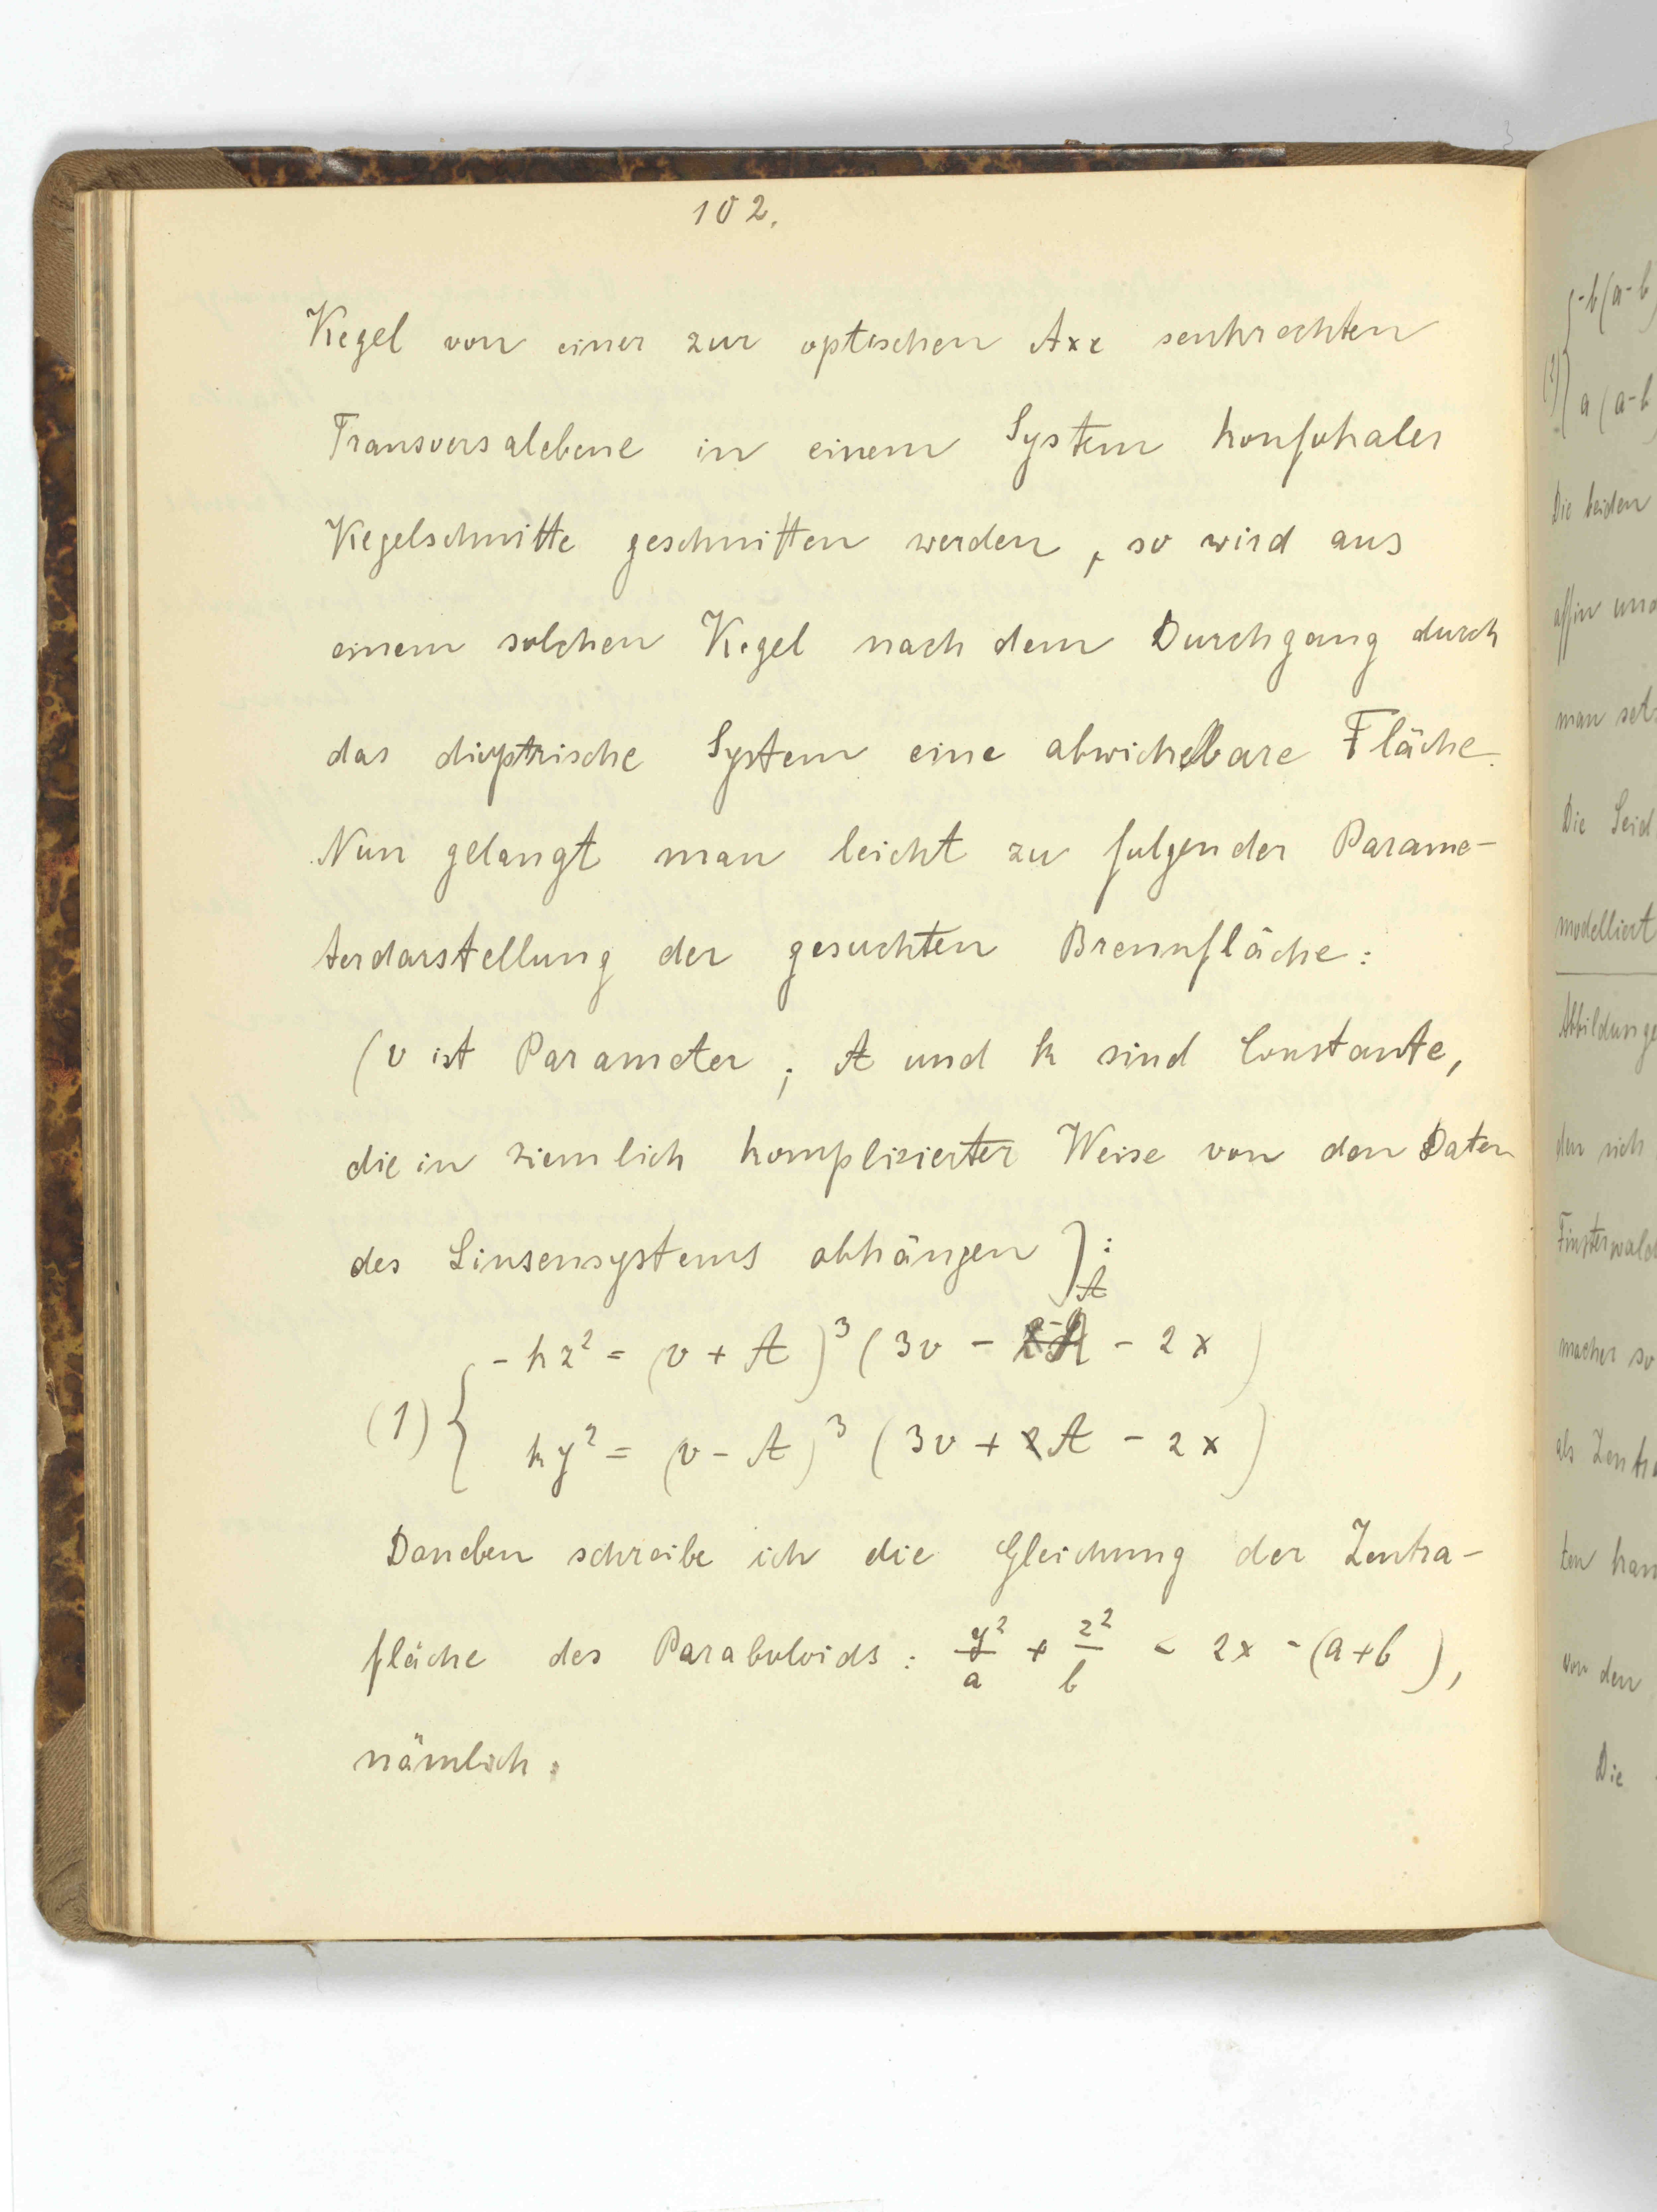 102.
Kegel von einer zur optischen Axe senkrechten
Transversalebene in einem System konfokaler
Kegelschnitte geschnitten werden, so wird aus
einem solchen Kegel nach dem Durchgang durch
das dioptrische System eine abwickelbare Fläche.
Nun gelangt man leicht zu folgender Parame-
terdarstellung der gesuchten Brennfläche:
(v ist Parameter; A und k sind Constante,
die in ziemlich komplizierter Weise von den Daten
des Linsensystems abhängen):
- kz² = (v + A)³ (3v - A - 2x)
(1) {
ky² = (v - A)³ (3v + A - 2x)
Daneben schreibe ich die Gleichung der Zentra-
fläche des Paraboloids: y²/a + z²/b = 2x - (a+b),
nämlich:
-b(a-b
(2) {
a(a-b
Die beiden
affin und
man set
Die Seid
modelliert
Abbildunge
den sich
Finsterwald
macher so
als Zentra
ten kan
von den
Die